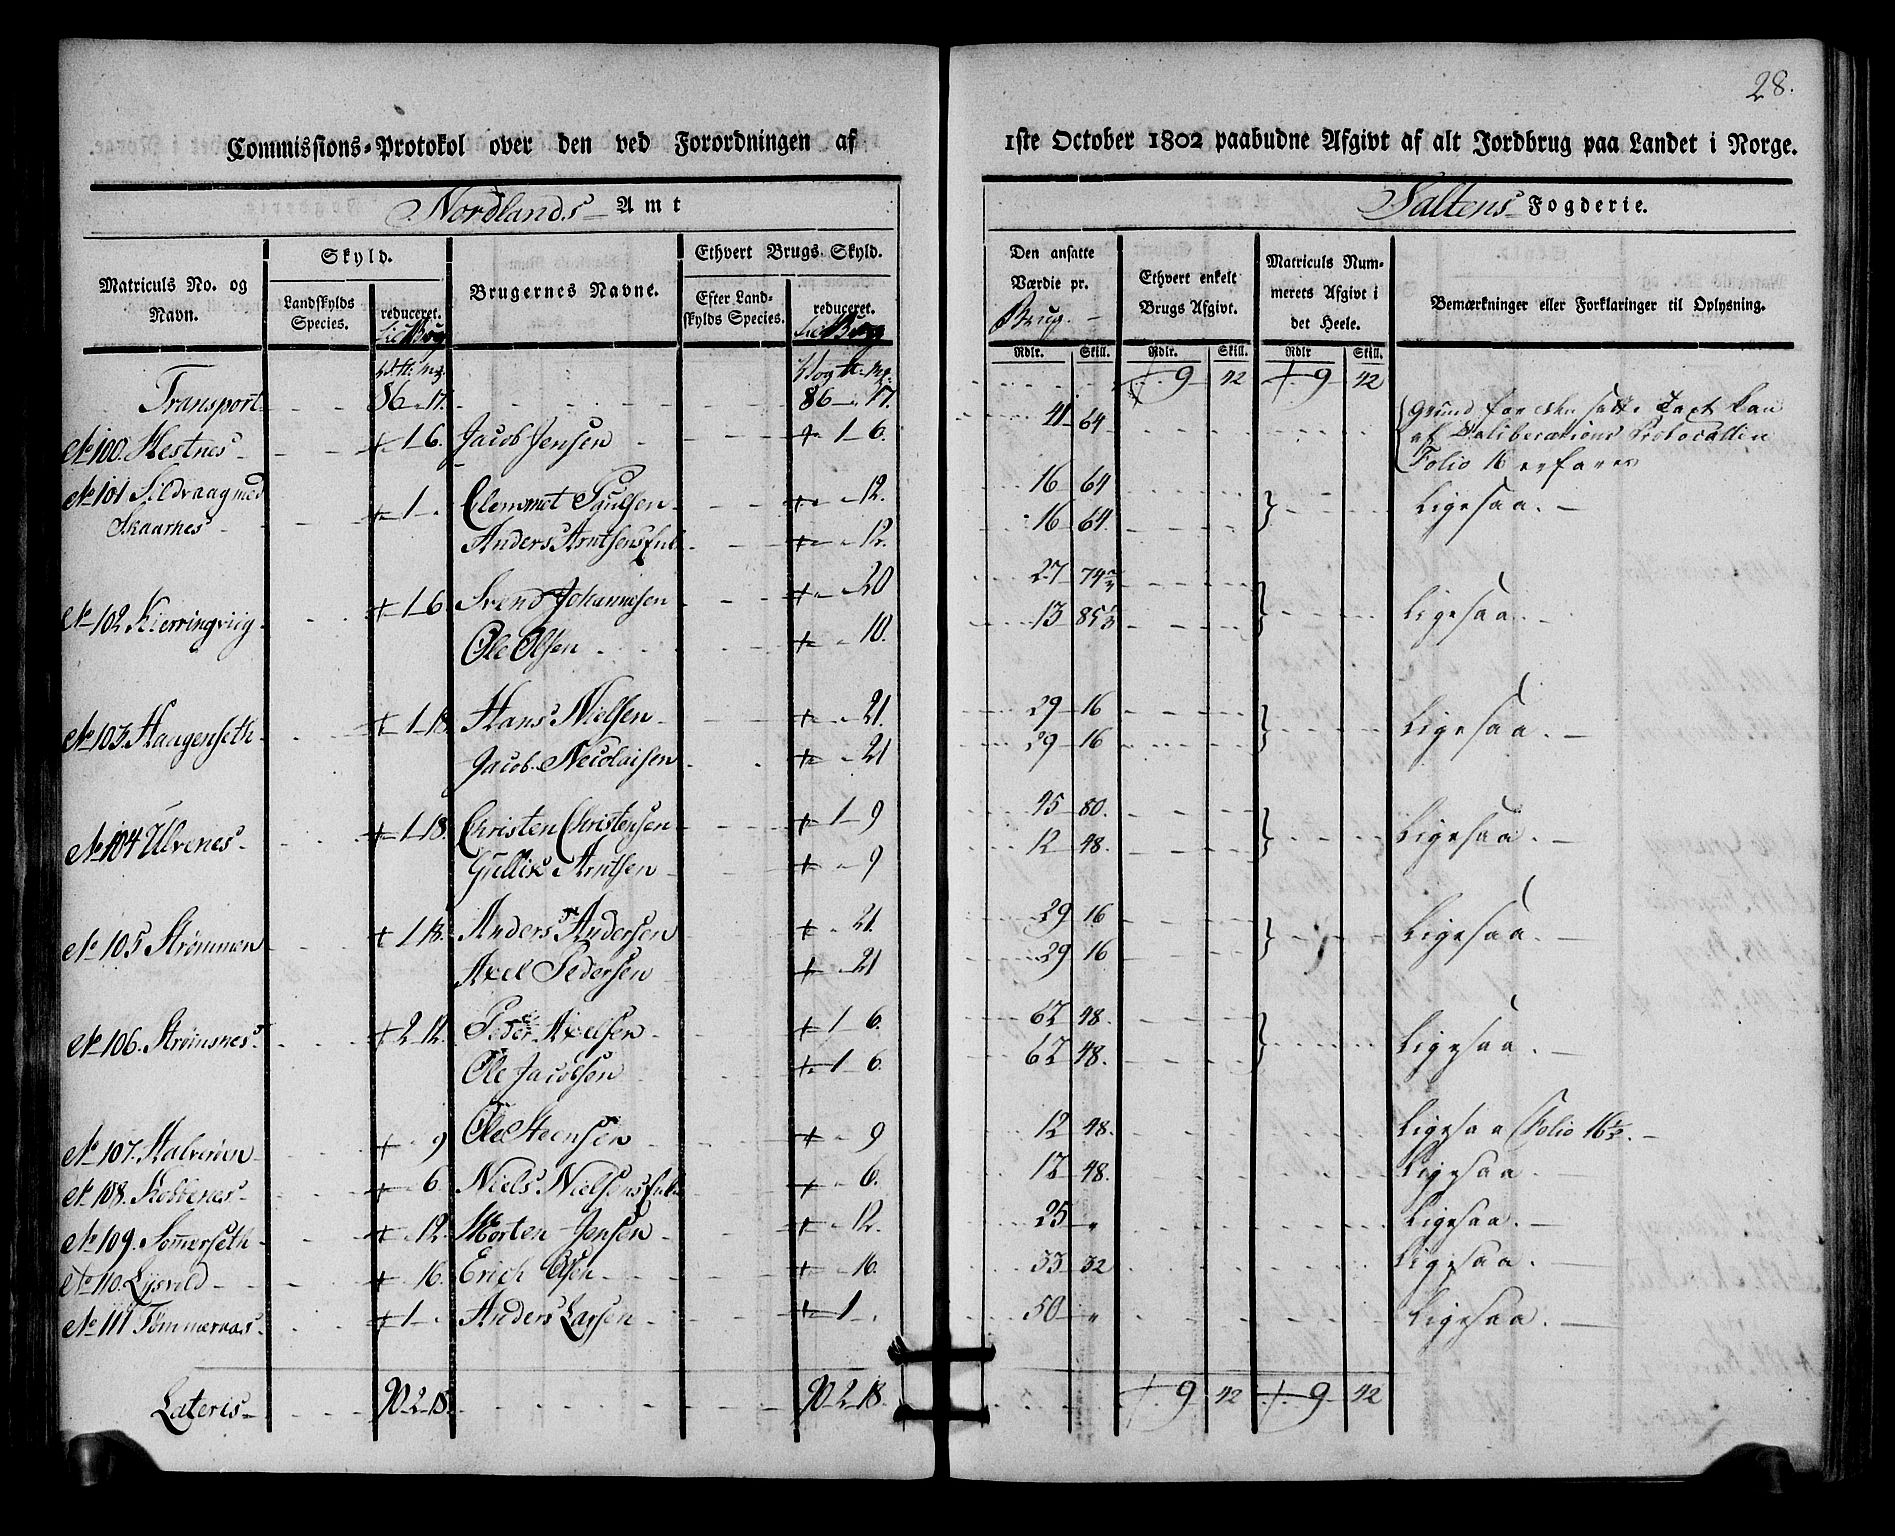 28.
Commissions-Protokol over den ved Forordningen af 1ste October 1802 paabudne Afgivt af alt Jordbrug paa Landet i Norge.
Nordlands Amt
Saltens Fogderie.
Matriculs No. og Navn.
Skyld.
Landskylds Species.
reduceret.
Brugernes Navne.
Ethvert Brugs Skyld.
Efter Landskylds Species.
reduceret.
Den ansatte Værdie pr. Brug.
Ethvert enkelt Brugs Afgivt.
Matriculs Nummerets Afgivt i det Heele.
Bemærkninger eller Forklaringer til Oplysning.
Rdlr. Skill. Rdlr. Skill. Rdlr Skill.
Transport 86 " 17. 86 " 17. 9 42 9 42
No 100. Hestnes 1 6. Jacob Jensen 1 6. 41 64
Folio 16 erfares
No 101 Sildvaag med Skaarnes 1 Clemmet Paulsen 12. 16 64 Ligesaa.
Anders Arntsens Enke 12. 16 64.
No 102 Kierringviig 1 6 Svend Johannesen 20 27 74 Ligesaa.
Ole Olsen 10. 13 85
No 103 Haugenseth 1 18 Hans Nielsen 21. 29 16 Ligesaa.
Jacob Nicolaisen 21 29 16
No 104 Ulvenes 1 18. Christen Christensen 1 9 45 80. Ligesaa.
Gullik Arntsen 9 12 48.
No 105 Strømmen 1 18. Anders Andersen 21. 29 16 Ligesaa.
Axel Pedersen 21 29 16
No 106. Strømsnes 2 12. Peder Axelsen 1 6. 62 48. Ligesaa.
Ole Jacobsen 1 6. 62 48.
No 107. Halvøien 9 Ole Steensen 9 12 48. Ligesaa Folio 16
No 108. Kobbenes 6 Niels Nielsens Enke 6. 12 48. Ligesaa
No 109. Sommerseth 12. Morten Jensen 12. 25 " Ligesaa.
No 110. Lysvold 16. Erich Olsen 16. 33 32 Ligesaa.
No 111 Tømmeraas 1 Anders Larsen 1 50 " Ligesaa.
Lateris 90 2 18. 90 2 18. 9 42 9 42